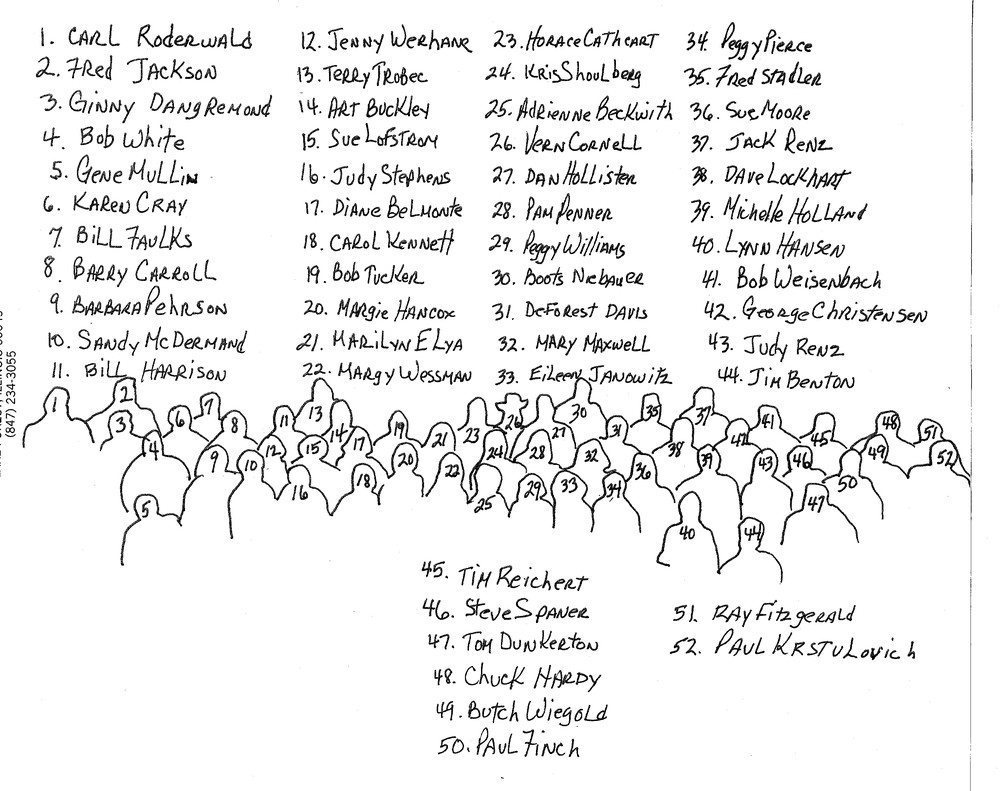 1. CARL RODERWALD
2. FRED JACKSON
3. GINNY DANGREMOND
4. Bob White
5. Gene MULLIN
6. KAREN CRAY
7. BILL FAULKS
8. BARRY CARROLL
9. BARBARA PehRSON
10. SANDY McDERMAND
11. BILL HARRISON
12. JENNY WERHANE
13. TERRY TROBEC
14. ART BUCKLEY
15. SUE LOFSTROM
16. Judy Stephens
17. DIANE BELMONTE
18. CAROL KENNETT
19. Bob TUCKER
20. MARGIE HANCOX
21. MARILYN ELYA
22. MARGY WESSMAN
23. HORACE CATHCART
24. KRIS ShouLberg
25. Adrienne Beckwith
26. VERN CORNELL
27. DAN HOLLISTER
28. PAM PENNER
29. Peggy Williams
30. Boots Niebauer
31. DeForest DAVIS
32. MARY MAXWELL
33. Eileen JANOWITZ
34. Peggy Pierce
35. FRED STADLER
36. SUE MOORE
37. JACK RENZ
38. DAVE LOCKHART
39. Michelle HOLLAND
40. LYNN HANSEN
41. Bob Weisenbach
42. George Christensen
43. Judy RENZ
44. JIM BENTON
(847) 234-3055
1 2 3 4 5 6 7 8 9 10 11 12 13 14 15 16 17 18 19 20 21 22 23 24 25 26 27 28 29 30 31 32 33 34 35 36 37 38 39 40 41 42 43 44 45 46 47 48 49 50 51 52
45. TIM Reichert
46. Steve SPANER
47. TOM DUNKERTON
48. Chuck HARDY
49. Butch Wiegold
50. PAUL FINCH
51. RAY Fitzgerald
52. PAUL KRSTULovich